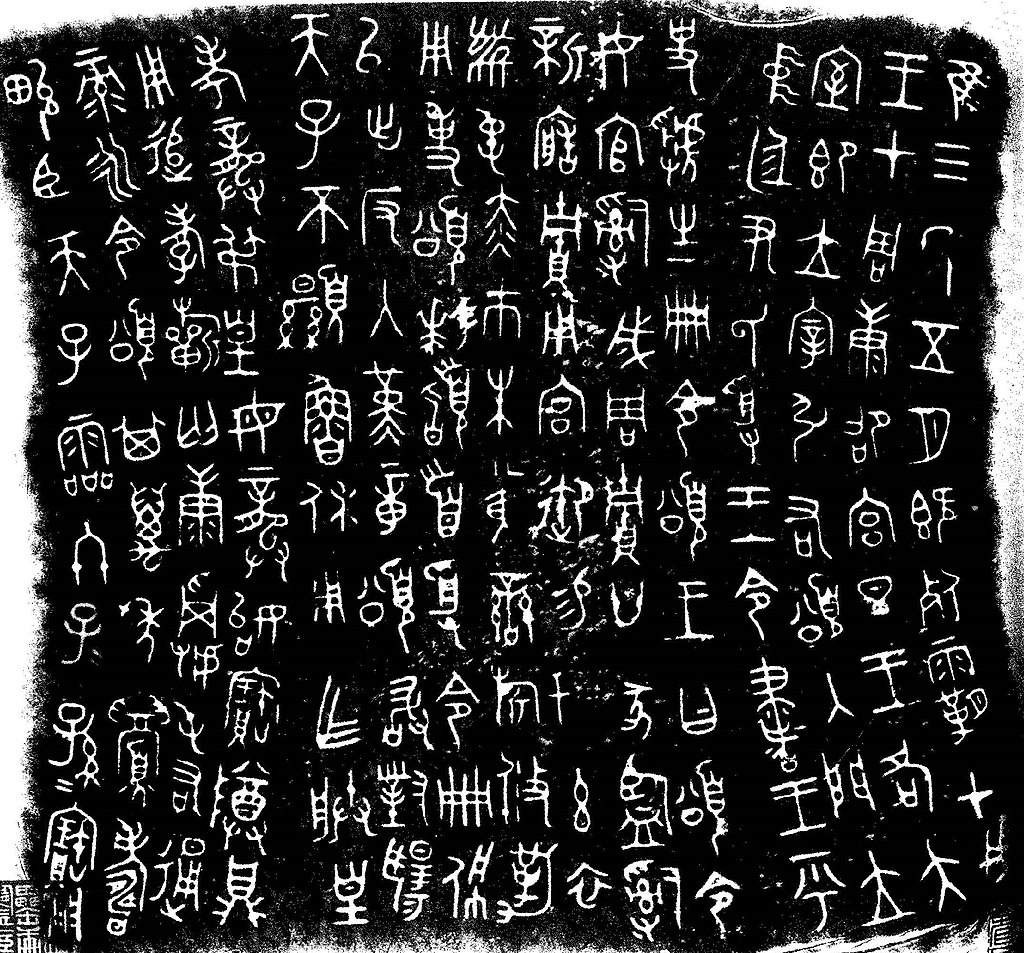 隹三年五月既死霸甲戌
王才周康卲宮旦王各大
室即立宰弘右頌入門立
中廷尹氏受王令書王乎
史虢生冊令頌王曰頌令
女官𤔲成周貯廿家監𤔲
新造貯用宮御易女玄衣
黹屯赤巿朱黃䜌旂攸勒
用事頌拜𩒨首受令冊佩
㠯出反入堇章頌敢對揚
天子不顯魯休用乍朕皇
考龔弔皇母龔始寶尊鼎
用追孝𣄨匄康屯右通
彔永令頌其萬年眉壽
畯臣天子霝冬子孫寶用